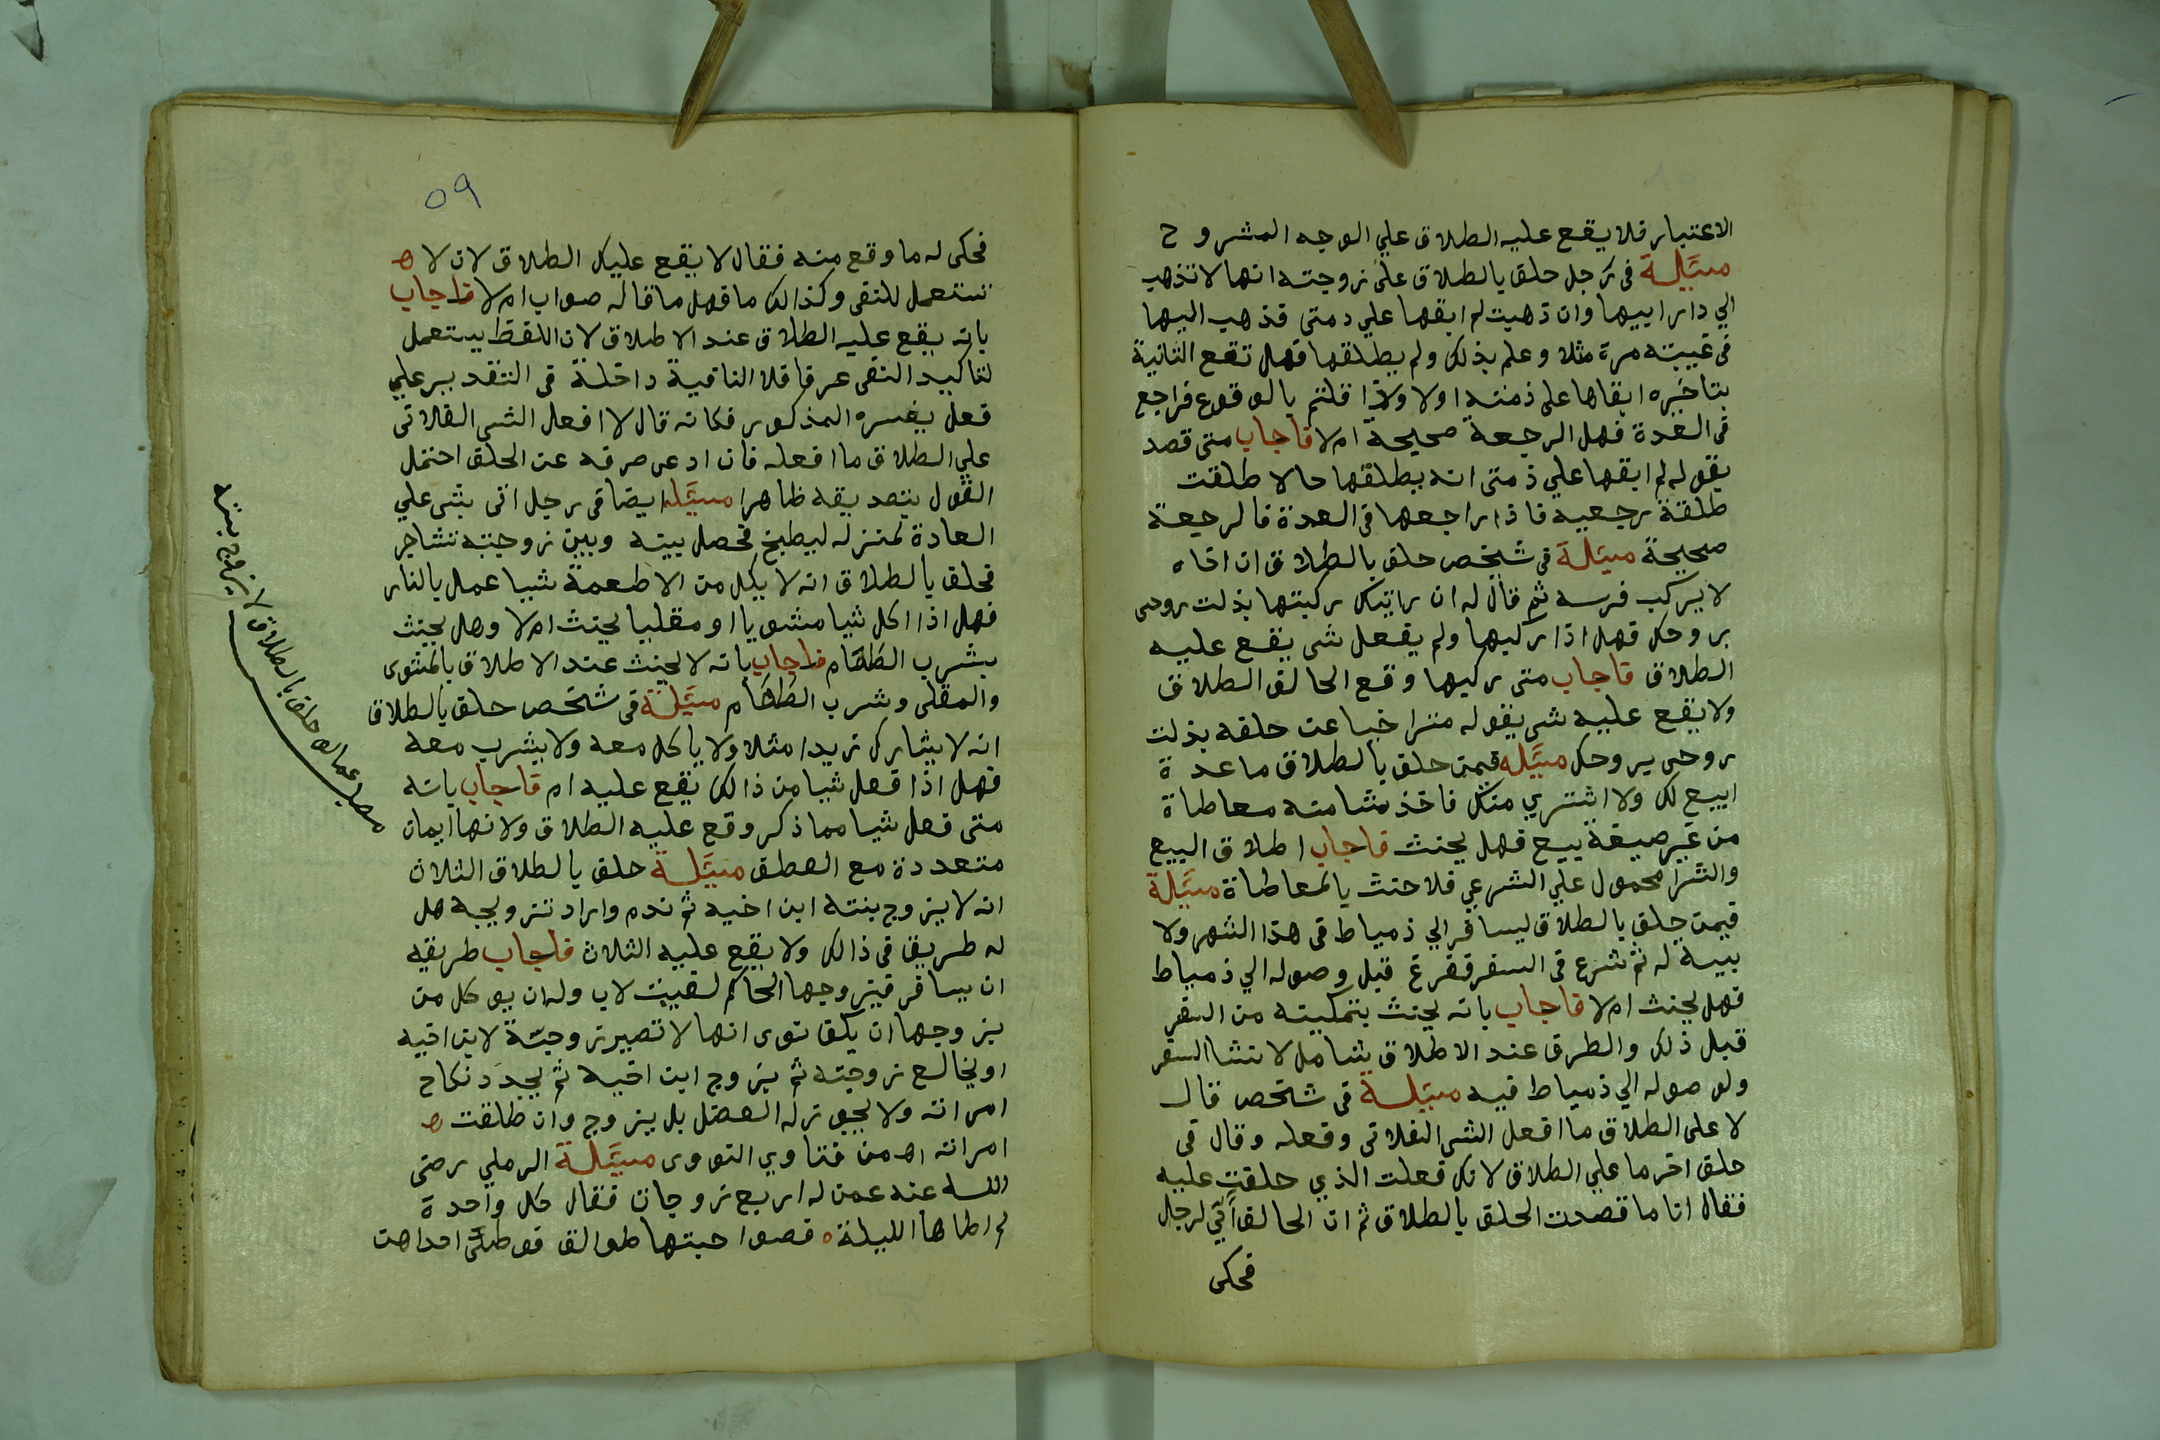 الاعتبار فلا يقع عليه الطلاق علي الوجه المشروح
مسيلة في رجل حلق بالطلاق على زوجته انها لا تذهب
الي دار ابيها وان ذهبت لم ابقها علي ذمتى فذهب اليها
في غيبته مرة مثلا وعلم بذلك ولم يطلقها فهل تقع الثانية
بتاخيره ابقاها على ذمته اولا واذا قلتم بالوقوع فراجع
في العدة فهل الرجعة صحيحة ام لا فاجاب متى قصد
بقوله لم ابقها علي ذمتى انه يطلقها حالا طلقت
طلقة رجعيه فاذا راجعها في العدة فالرجعة
صحيحة مسيلة في شخص حلق بالطلاق ان اخاه
لا يركب فرسه ثم قال له ان ركبتها بذلت روحى
بروحك فهل اذا ركبها ولم يفعل شى يقع عليه
الطلاق فاجاب متى ركبها وقع الحالق الطلاق
ولا يقع عليه شى بقوله متراخيا عن حلقه بذلت
روحى بروحك مسيله فيمن حلق بالطلاق ما عدة
ابيع لك ولا اشتري منك فاخذ منه معاطاة
من غير صيغة بيع فهل يحنث فاجاب اطلاق البيع
والشرا محمول علي الشرعي فلا حنث بالمعاطاة مسيلة
فيمن حلق بالطلاق ليسافر الي دمياط في هذا الشهر ولا
بيه له ثم شرع في السفر ففرغ قبل وصوله الي دمياط
فهل يحنث ام لا فاجاب بانه يحنث بتمكينه من السفر
قبل ذلك والطرق عند الاطلاق لانشا السفر
ولوصوله الي دمياط فيه مسيلة في شخص قال
لا على الطلاق ما افعل الشى الفلاتى وفعله وقال في
حلق اخر ما علي الطلاق لانك فعلت الذي حلقت عليه
فقال انا ما قصدت الحلق بالطلاق ثم ان الحالق اتى لرجل
فحكى
٥٩
فحكى له ما وقع منه فقال لا يقع عليك الطلاق لان لا
تستعمل للنفى وكذالك ما فهل ما قاله صواب ام لا فاجاب
بانه يقع عليه الطلاق عند الاطلاق لان اللفظ يستعمل
لتاكيد النفى عرفا فلا النافية داخلة في التقدير علي
فعل يفسره المذكور فكانه قال لا افعل الشى الفلاتى
علي الطلاق ما افعله فان ادعى صرفه عن الحلق احتمل
القول بتصديقه ظاهرا مسيله ايضا في رجل اتى بشى علي
العادة لمنزله ليطبخ فحصل بينه وبين زوجته تشاجر
فحلق بالطلاق انه لا ياكل من الاطعمة شيا عمل بالنار
فهل اذا اكل شيا مشويا او مقليا يحنث ام لا وهل يحنث
بشرب الطعام فاجاب بانه لا يحنث عند الاطلاق بالمشوى
والمقلى وشرب الطعام مسيلة في شخص حلق بالطلاق
انه لا يشارك زيدا مثلا ولا ياكل معه ولا يشرب معه
فهل اذا فعل شيا من ذالك يقع عليه ام فاجاب بانه
متى فعل شيا مما ذكر وقع عليه الطلاق ولانها ايمان
متعددة مع العطق مسيلة حلق بالطلاق الثلاث
انه لا يزوج بنته ابن اخيه ثم ندم واراد تزويجه هل
له طريق في ذالك ولا يقع عليه الثلاث فاجاب طريقه
ان يسافر فيزوجها الحاكم لغيبت لاب وله ان يوكل من
يزوجها ان يكن نوى انها لا تصير زوجة لابن اخيه
او يخالع زوجته ثم يزوج ابن اخيه ثم يجدد نكاح
امراته ولا يجوز له العضل بل يزوج وان طلقت
امراته اه من فتاوي النووى مسيلة الرملي رضى
الله عنه عمن له اربع زوجات فقال كل واحدة
لم اطاها الليلة ه فصواحبتها طوالق فوطئ احداهن
مطلب عمن حلق بالطلاق لا يزوج بنته